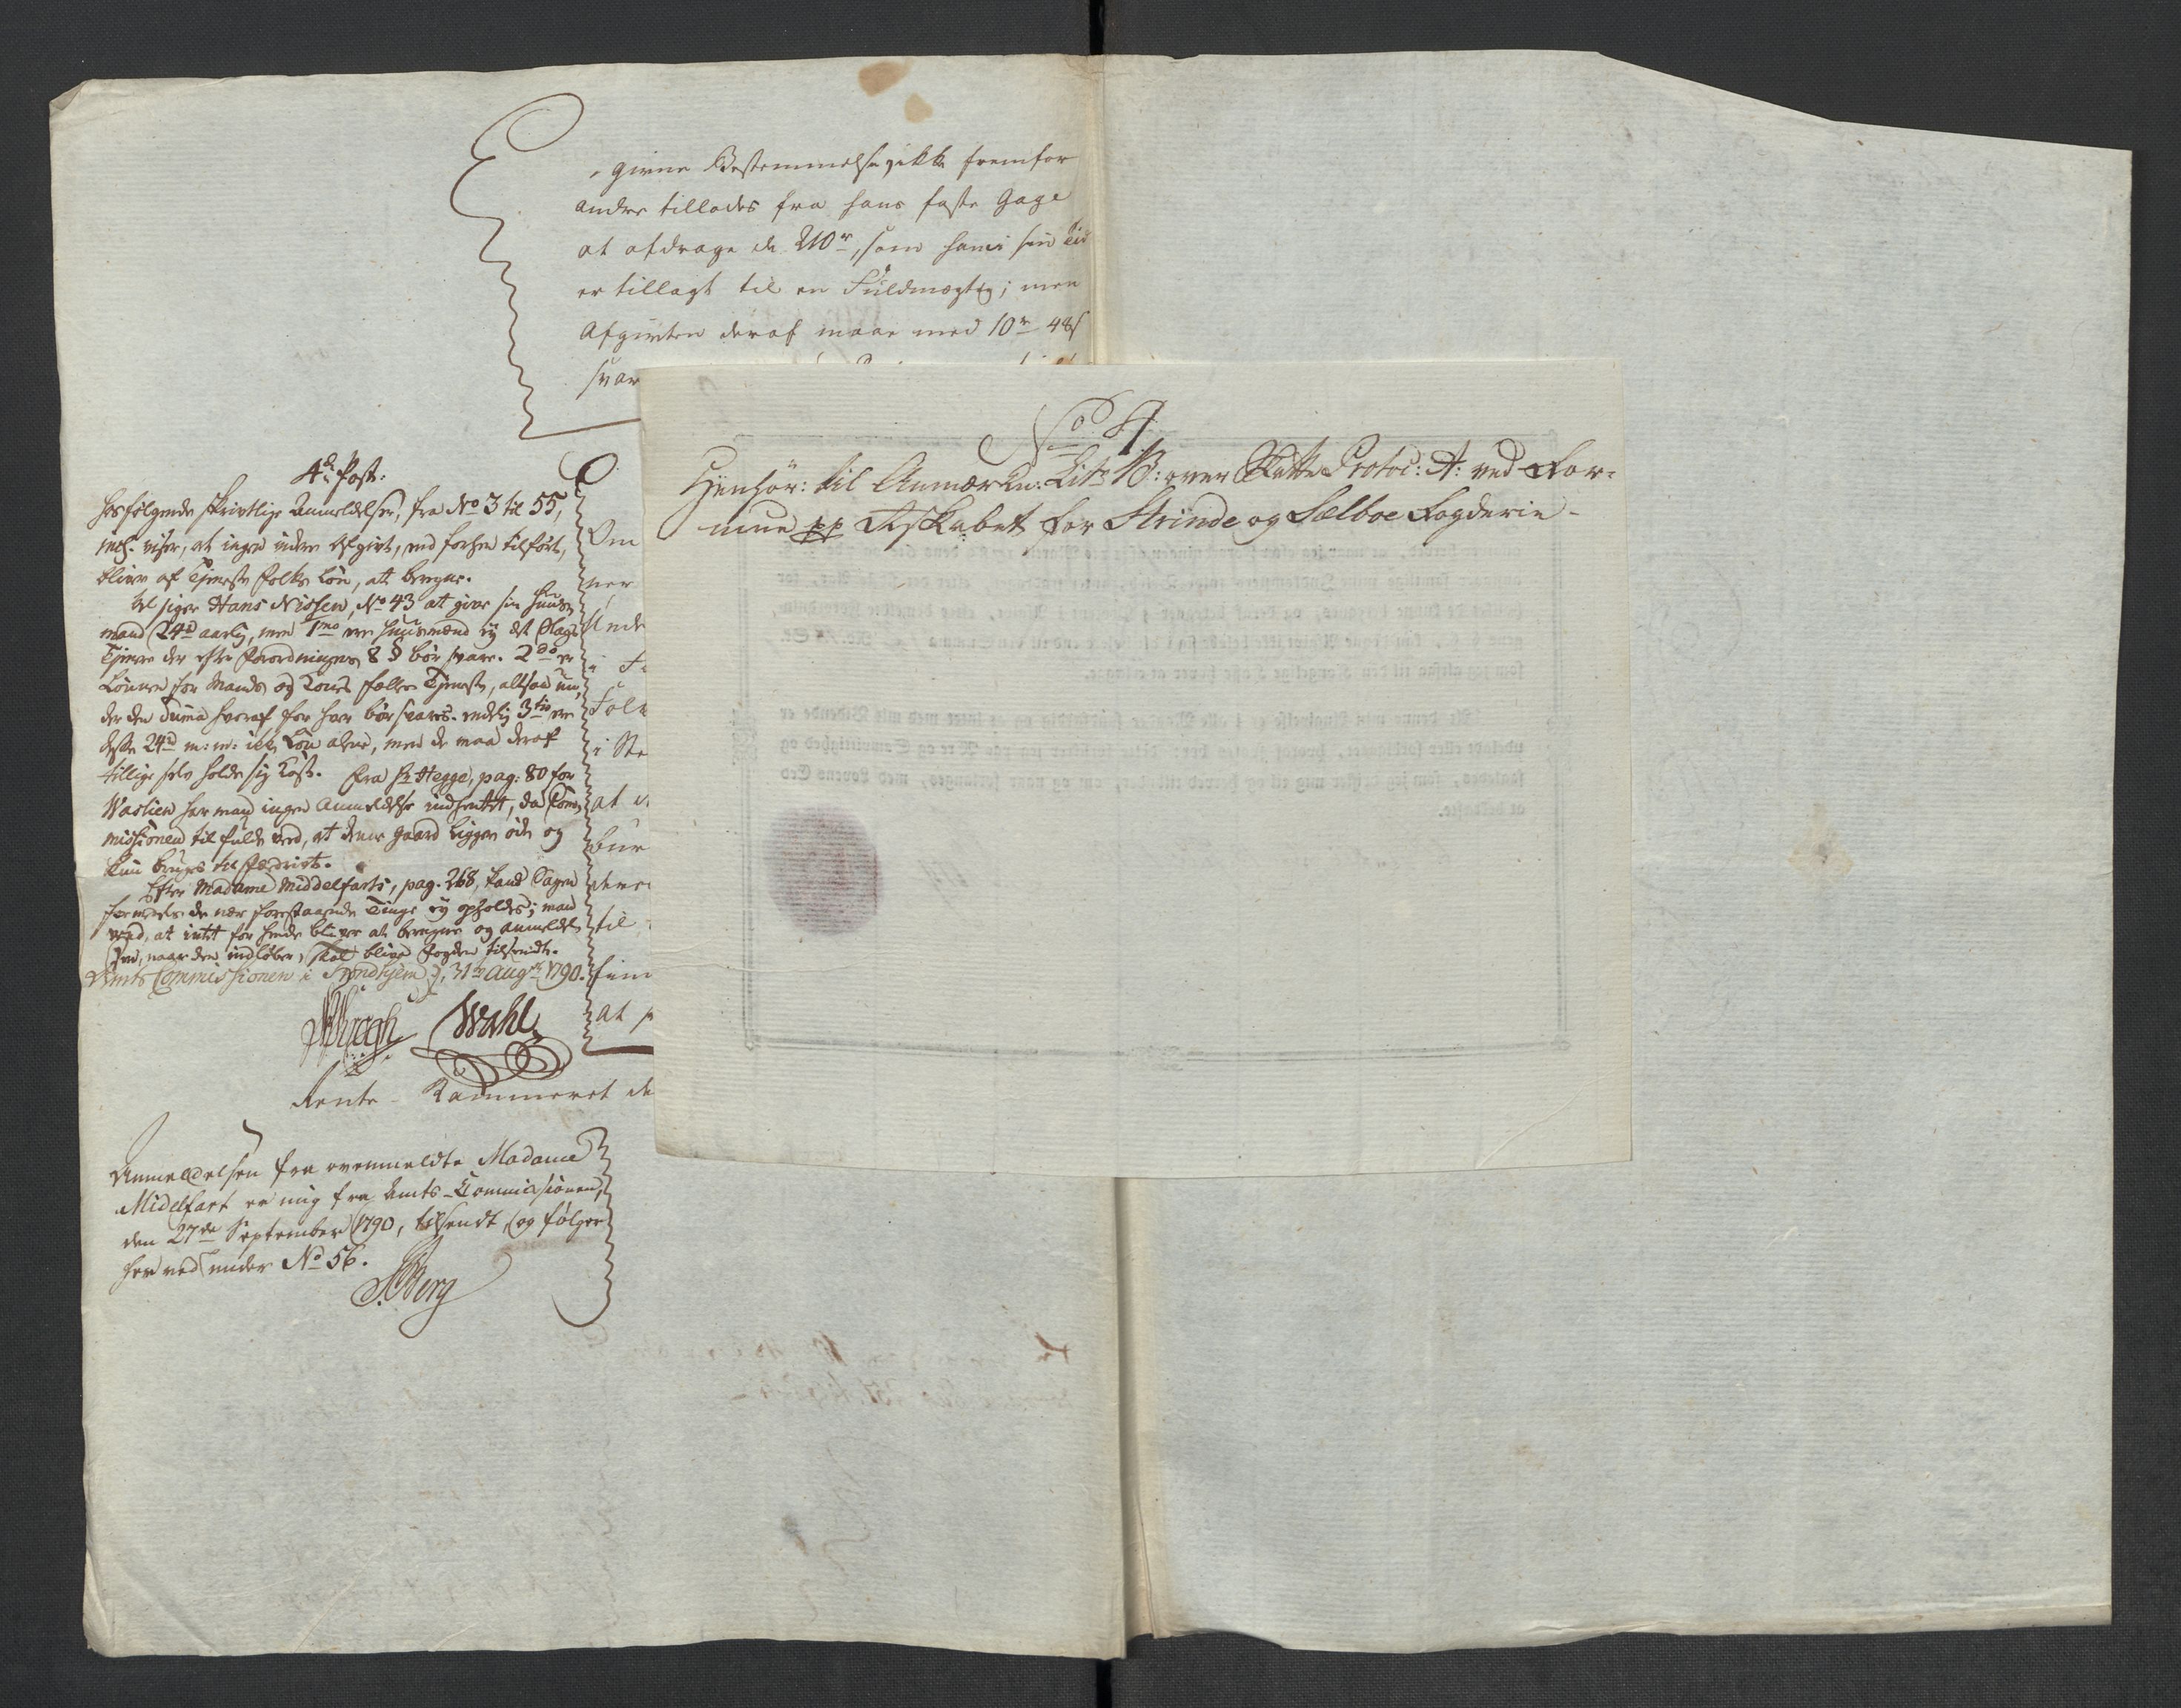 givne Bestemmelse, ikke fremfor
andre tillades fra hans faste Gage
at afdrage de 210 rd, som ham i sin Tid
er tillagt til en Fuldmægtig; men
Afgivten deraf maae med 10 rd 48 s
svar
4de Post.
Hosfølgende skrivtlige Anmeldelser, fra No 3 til 55,
incl. viser, at ingen videre Afgivt, end forhen tilført,
bliver af Tjeneste Folks Løn, at beregne.
Vel siger Hans Nissen, No 43 at give sin Huus
mand 24 d aarlig, men 1mo ere Huusmænd ej det Slags
Tjenere der efter Forordningens 8 § bør svare. 2do er
Lønnen for Mands og Kones fælles Tjeneste, altsaa un,
der den Summa hvoraf for hver bør svares. endelig 3tio ere
disse 24 d m: m: ikke Løn alene, men de maa deraf
tillige selv holde sig Kost. Fra Hr Hegge, pag: 80 for
Waslien har man ingen Anmeldelse indhentet, da Com
missionen til fulde veed, at denne Gaard ligger øde og
kun bruges til Fædrivt.
Efter Madame Middelfarts, pag. 268, kand Sagen
formedelst de nær forestaaende Tinge ej opholdes; man
veed, at intet for hende bliver at beregne og Anmeldel
sen, naar den indløber, skal blive Fogden tilsendt.
Amts Commissionen i Trondhjem d. 31te Augst 1790.
Wahl
Om
ner
Unde
i
Folk
i Ste
at
bur
denne
til
fin
at
Rente-Kammeret de
Anmeldelsen fra ovenmeldte Madame
Midelfart er mig fra Amts-Commissionen,
den 27de September 1790, tilsendt, og følger
her ved under No 56.
Berg
No 4.
Henhør: til Anmærkn: Litr B: over Skatte Protoc: A: ved For-
mue pp Askabet for Strinde og Sælboe Fogderie-